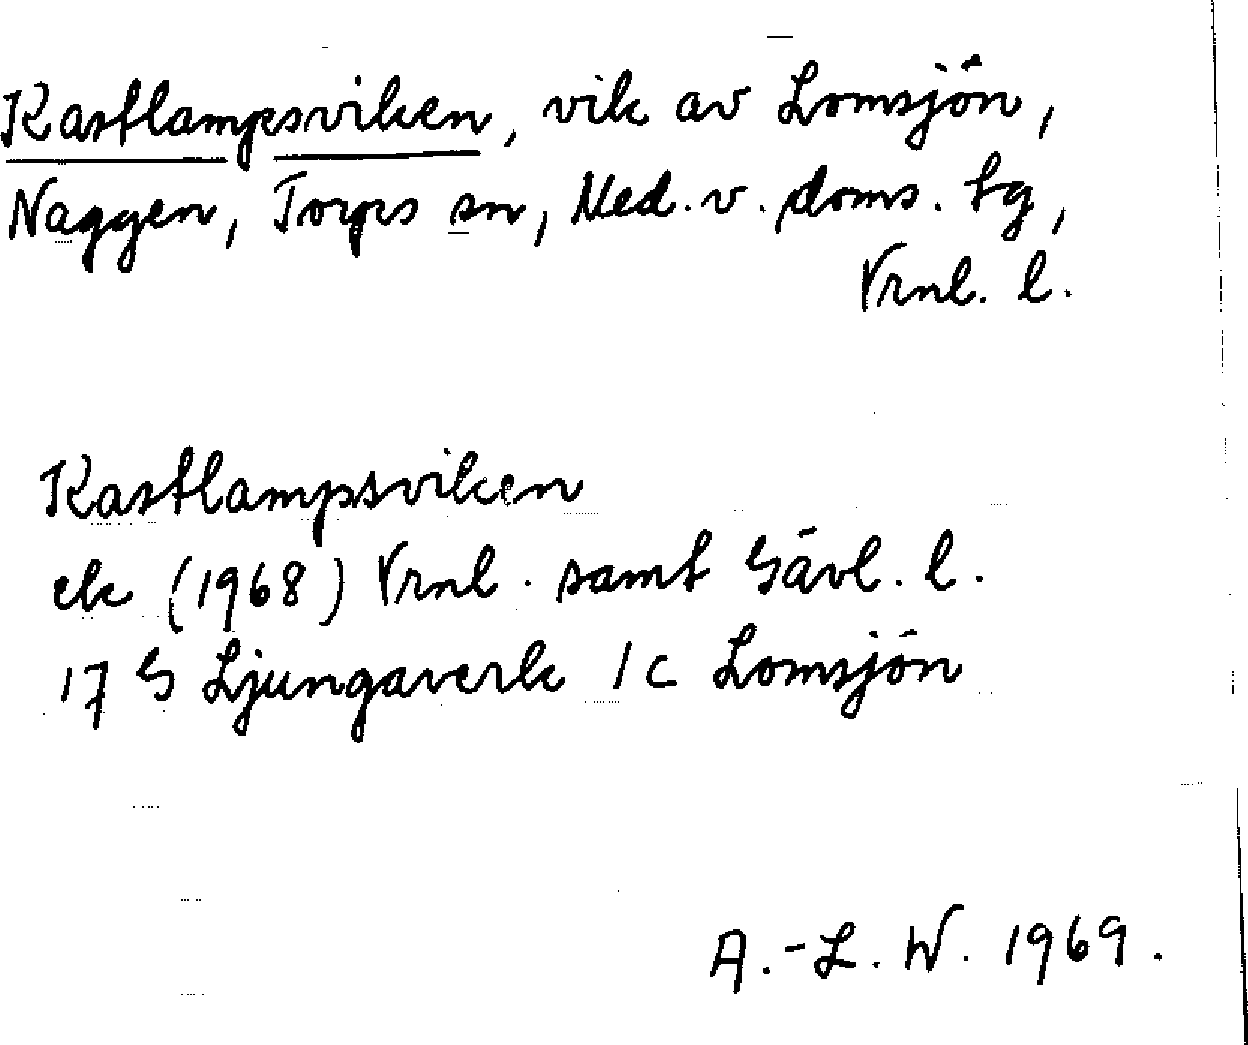 Kastlampsviken, vik av Lomsjön,
Naggen, Torps sn, Med. v. doms. tg,
Vrnl. l.
Kastlampsviken
ek (1968) Vrnl. samt Gävl. l.
17 G Ljungaverk 1 c Lomsjön
A.-L. W. 1969.